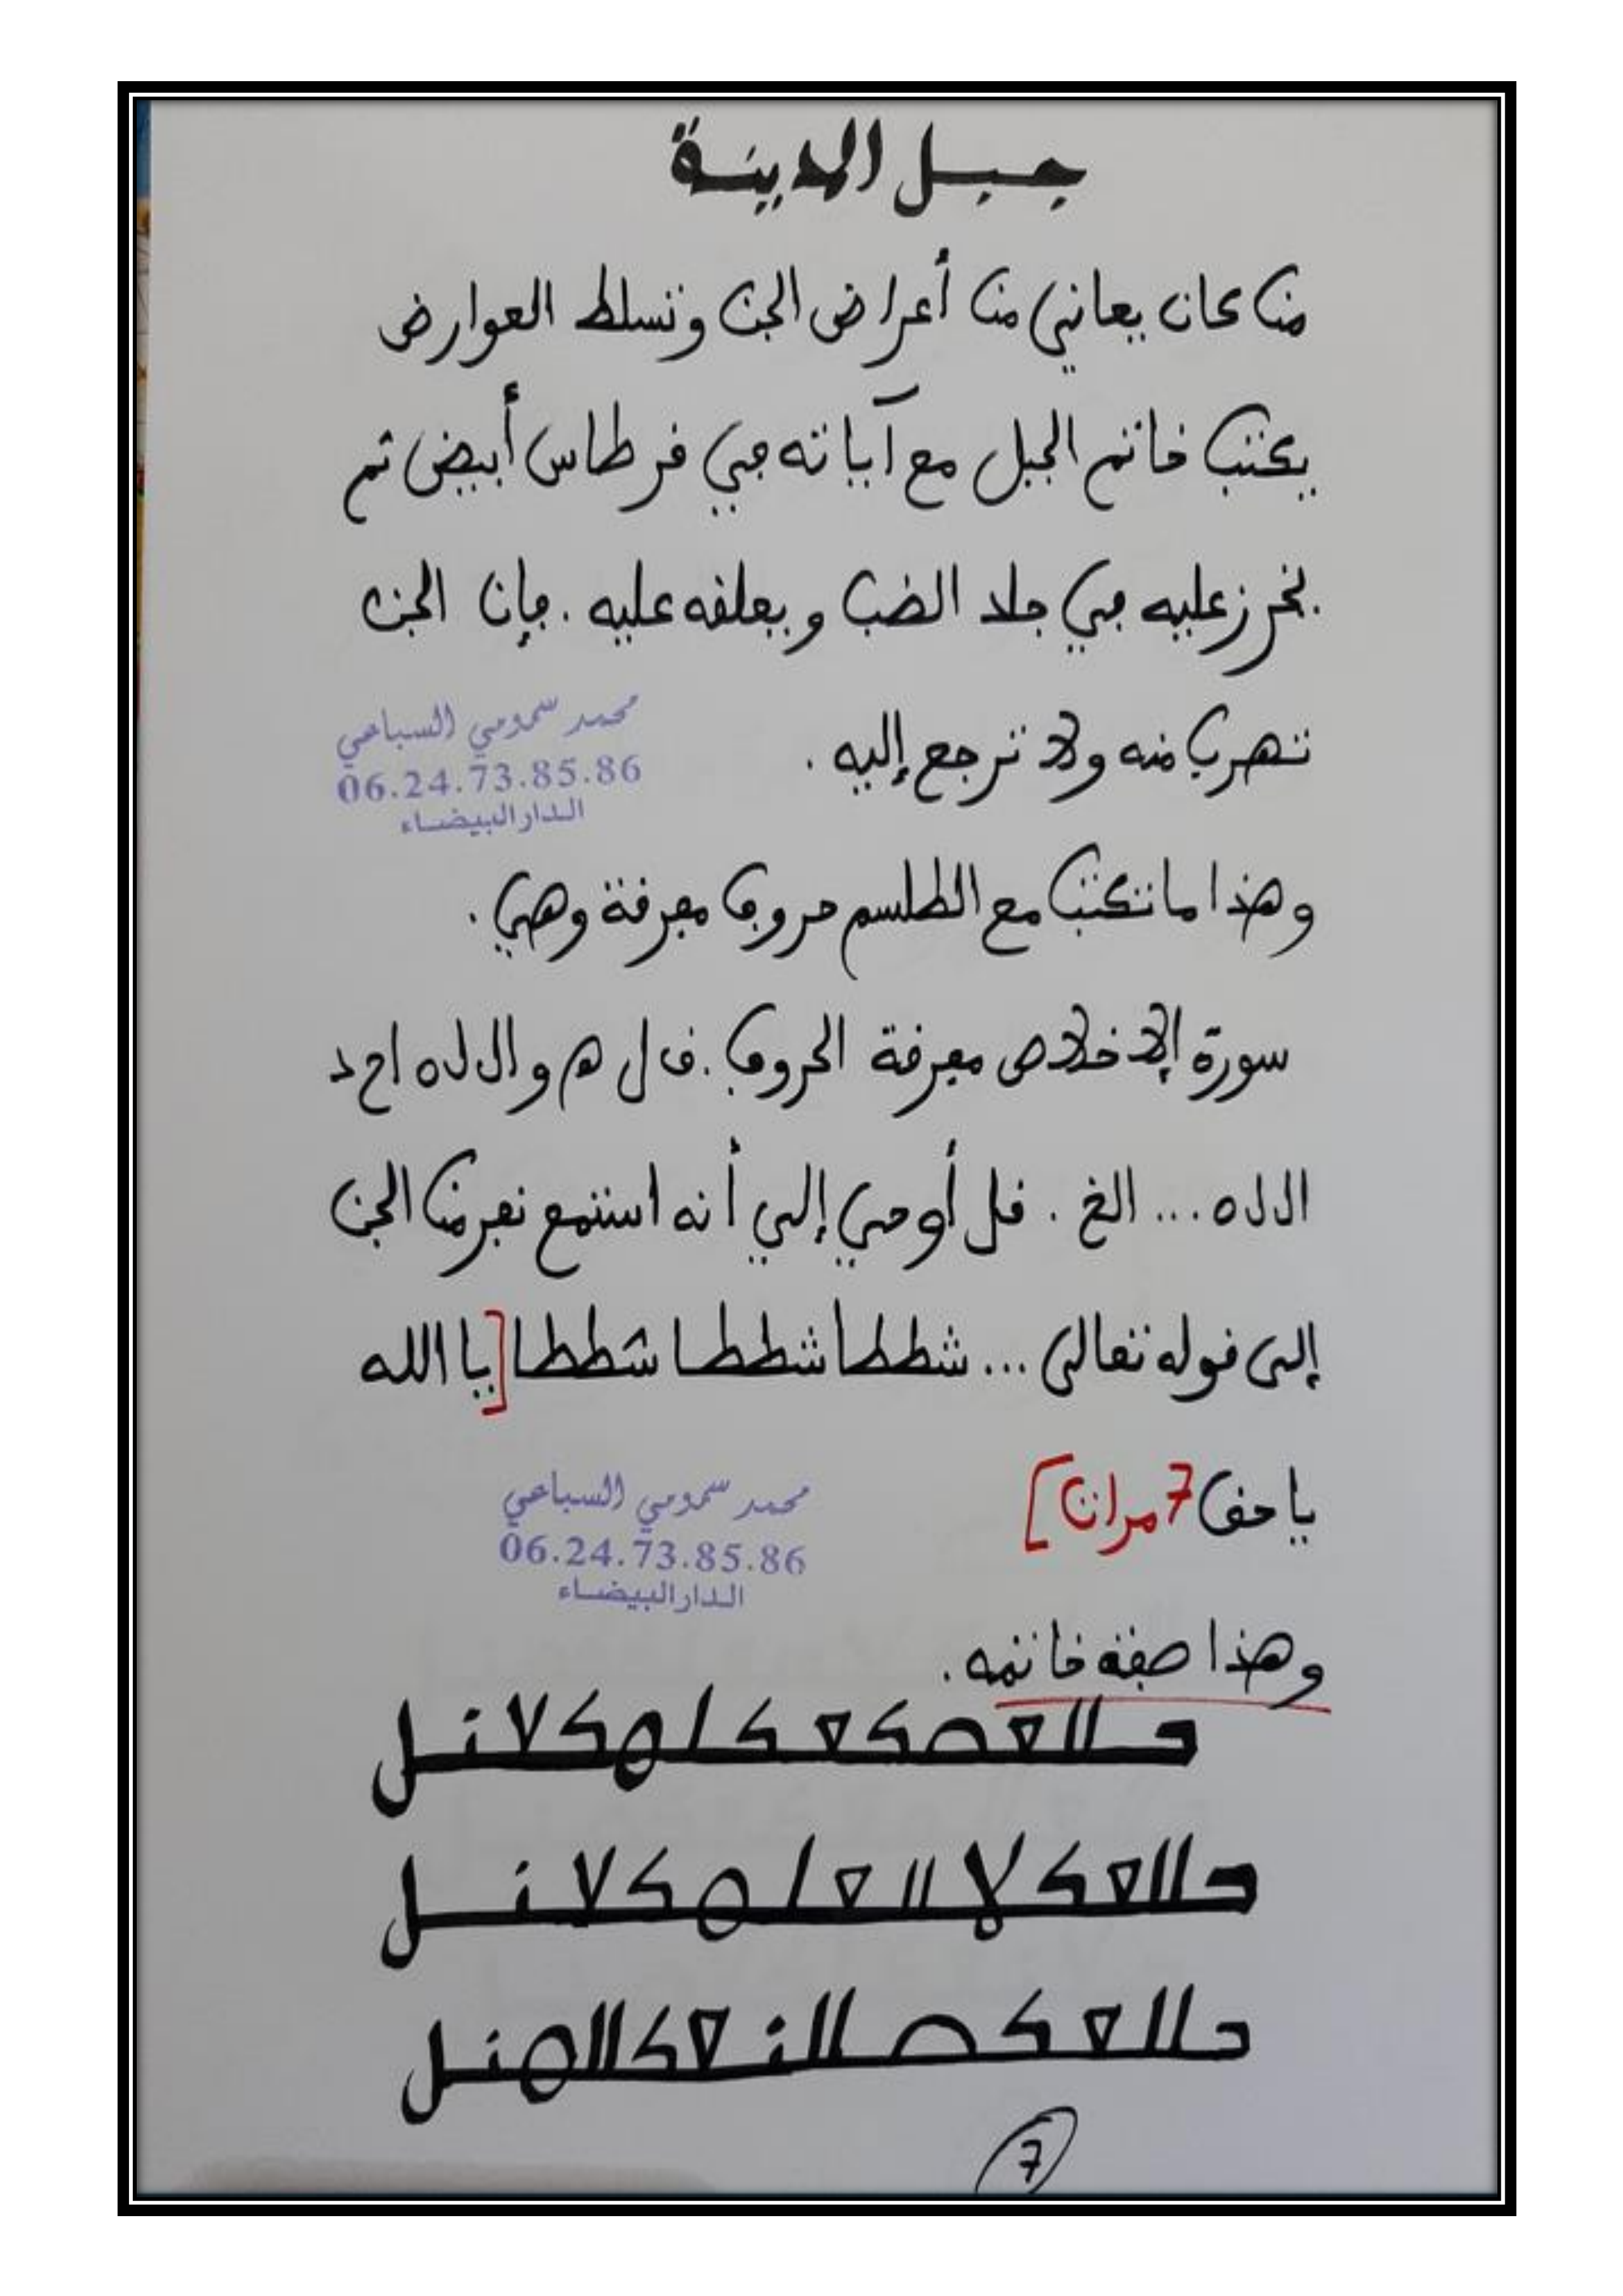 جبل المدينة
من كان يعاني من أعراض الجن وتسلط العوارض
يكتب خاتم الجبل مع آياته في قرطاس أبيض ثم
يخرز عليه في جلد الضب ويعلقه عليه . فإن الجن
تهرب منه ولا ترجع إليه .
محمد سمومي السباعي
06.24.73.85.86
الدار البيضاء
وهذا ما تكتب مع الطلسم حروف مفرقة وهي .
سورة الإخلاص مفرقة الحروف . ق ل ه و ا ل ل ه ا ح د
ا ل ل ه ... الخ . قل أوحي إلي أنه استمع نفر من الجن
إلى قوله تعالى ... شططا شططا شططا [يا الله
يا حق 7 مرات]
محمد سمومي السباعي
06.24.73.85.86
الدار البيضاء
وهذا صفة خاتمه .
7